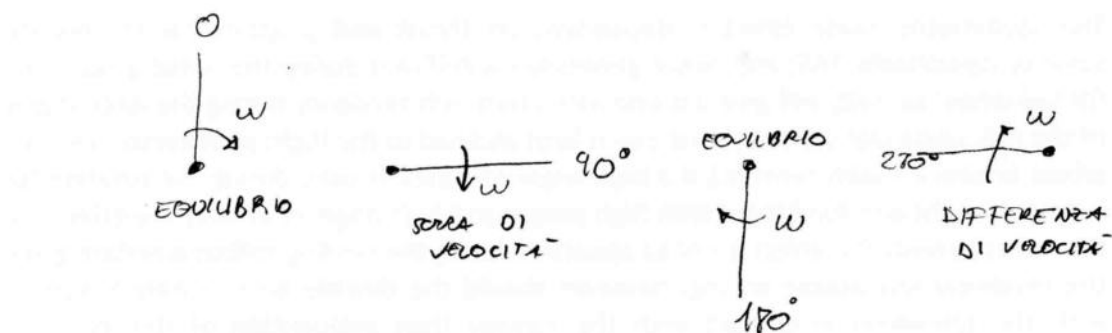 0
ω
EQUILIBRIO
90°
ω
SOPRA DI
VELOCITA'
EQUILIBRIO
ω
180°
270°
ω
DIFFERENZA
DI VELOCITA'